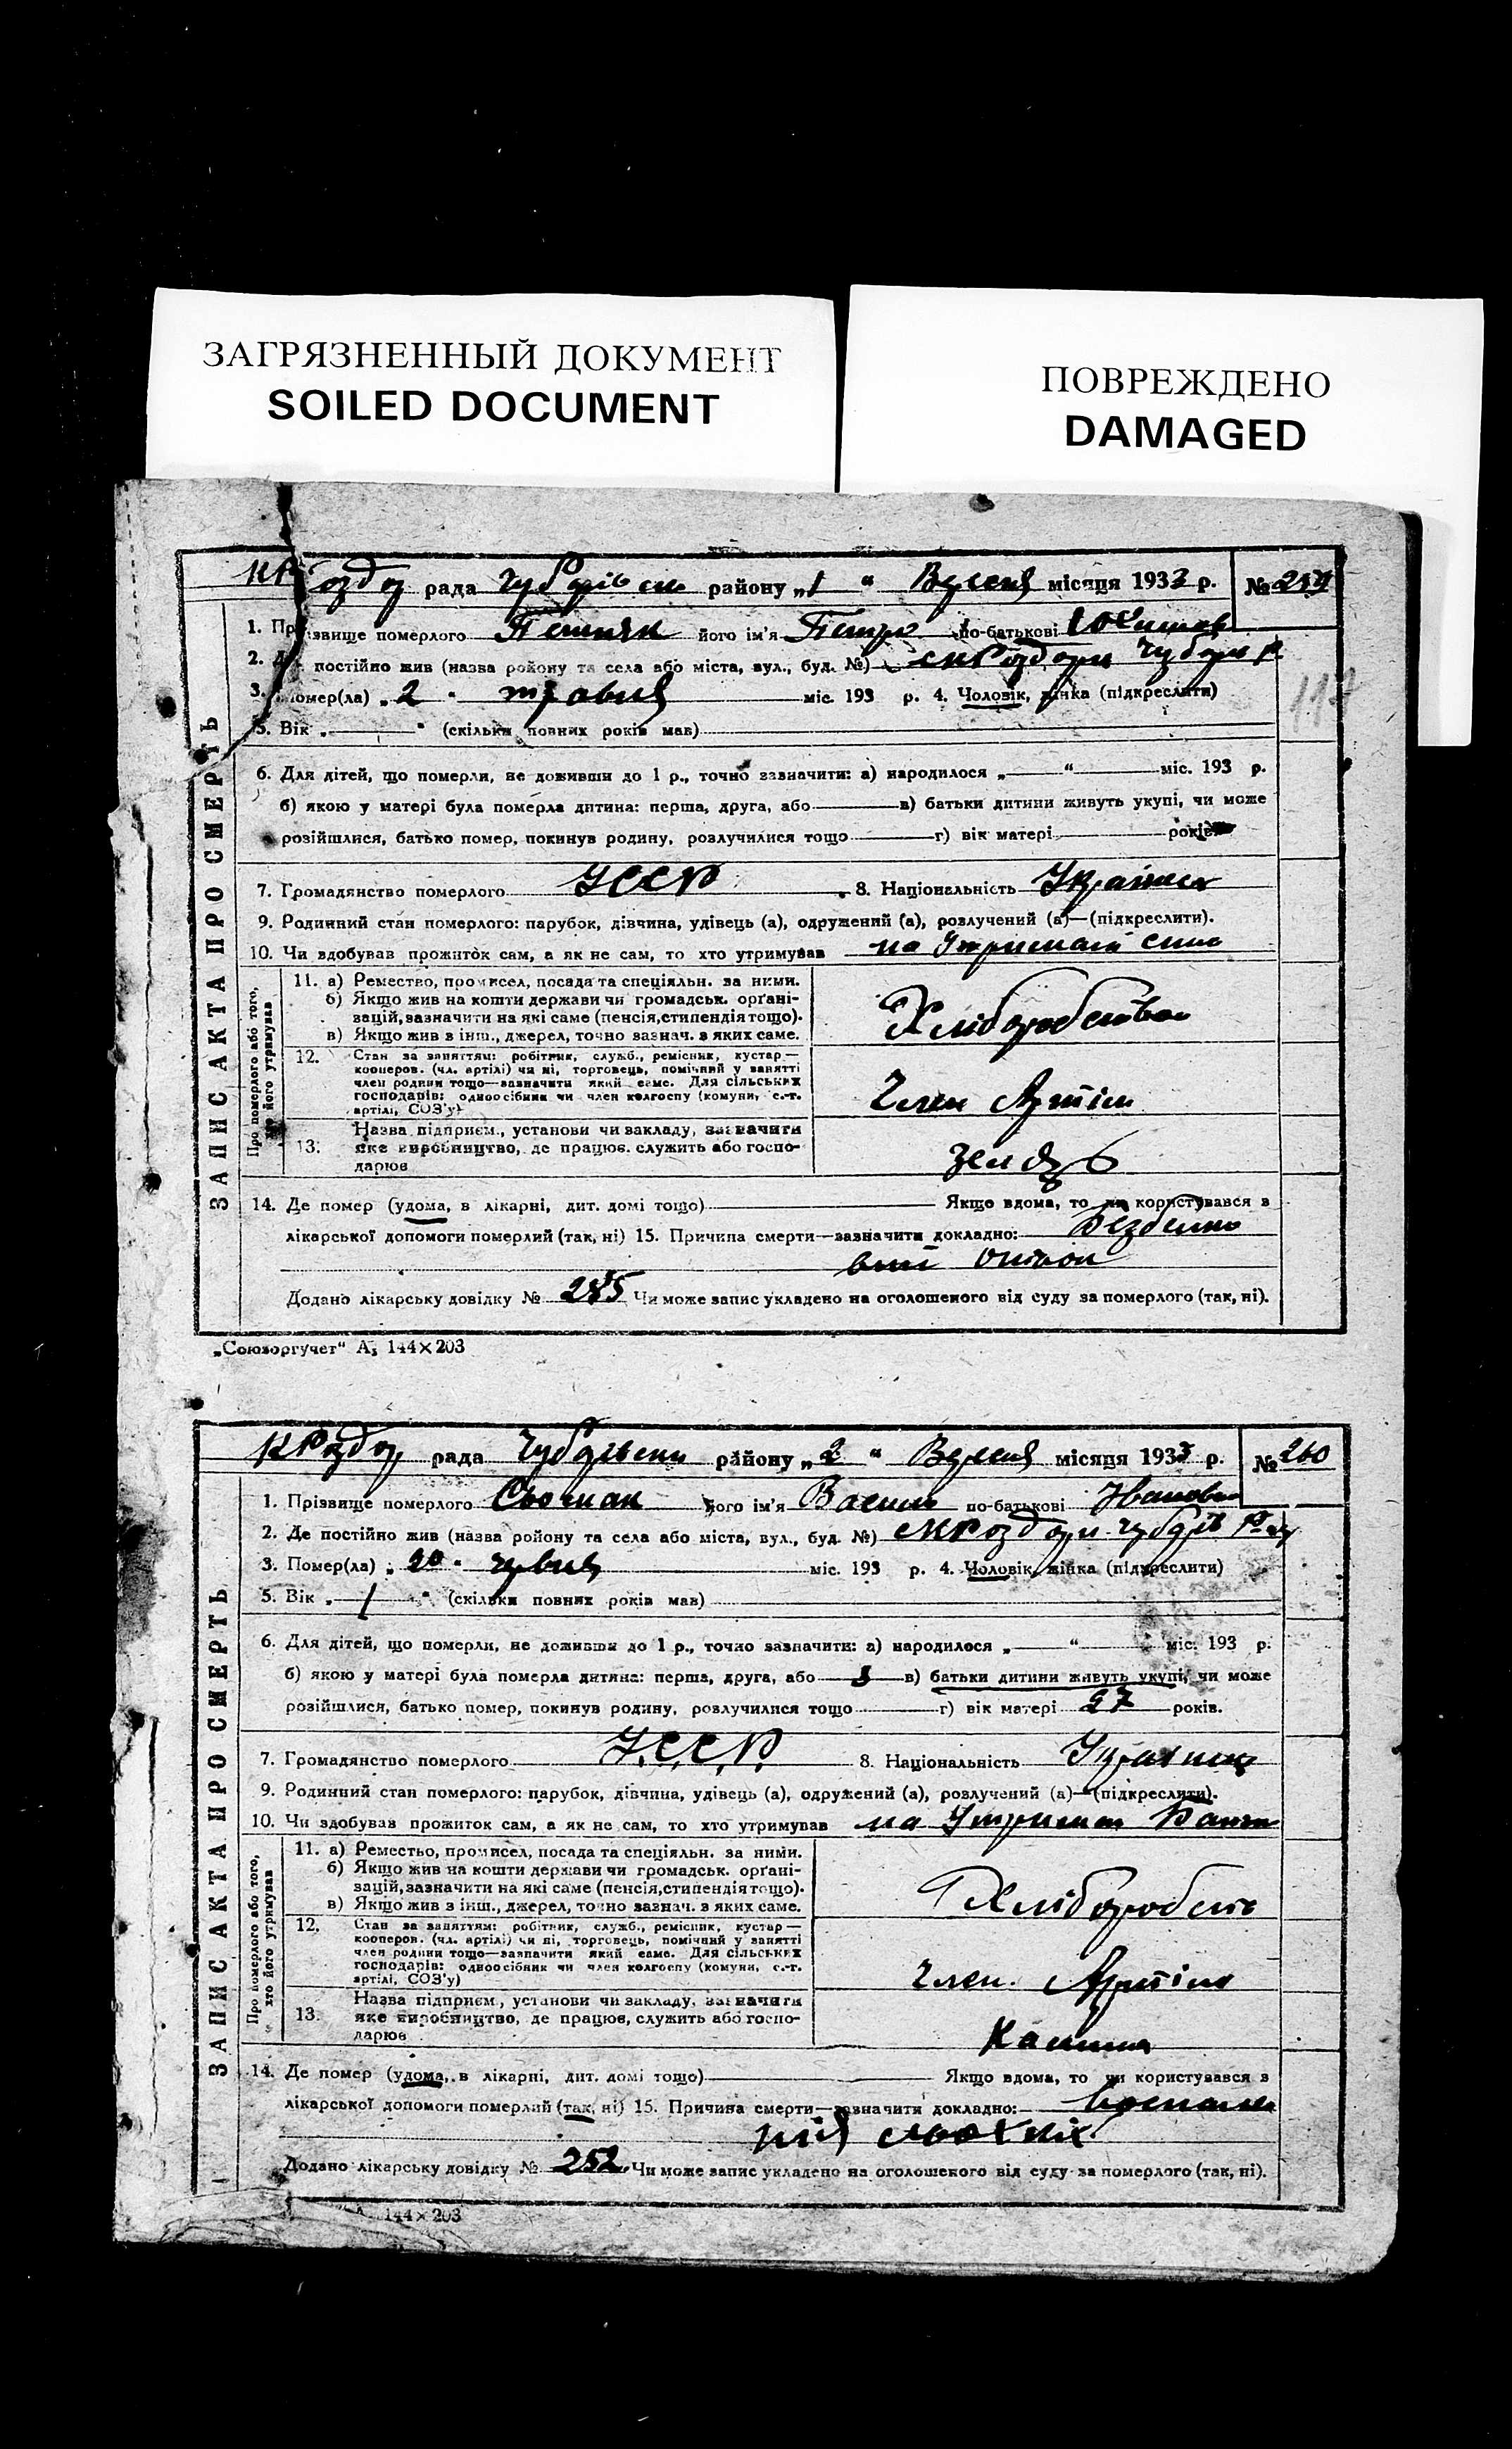 ЗАГРЯЗНЕННЫЙ ДОКУМЕНТ
SOILED DOCUMENT
ПОВРЕЖДЕНО
DAMAGED
рада району „1“ місяця 1933 р. №
1. Прізвище померлого його ім'я Петро по-батькові
2. постійно жив (назва ройону та села або міста, вул., буд. №)
3. Помер(ла) „2“ травня міс. 193 р. 4. Чоловік, жінка (підкреслити)
5. Вік „ “ (скільки повних років мав)
6. Для дітей, що померли, не доживши до 1 р., точно зазначити: а) народилося „ “ міс. 193 р.
б) якою у матері була померла дитина: перша, друга, або в) батьки дитини живуть укупі, чи може
розійшлися, батько помер, покинув родину, розлучилися тощо г) вік матері років.
7. Громадянство померлого УССР 8. Національність
9. Родинний стан померлого: парубок, дівчина, удівець (а), одружений (а), розлучений (а)—(підкреслити).
10. Чи здобував прожиток сам, а як не сам, то хто утримував на
11. а) Ремество, промисел, посада та спеціяльн. за ними.
б) Якщо жив на кошти держави чи громадськ. орґані-
зацій, зазначити на які саме (пенсія, стипендія тощо).
в) Якщо жив з інш., джерел, точно зазнач. з яких саме.
Хліборобство
12. Стан за заняттям: робітник, служб., ремісник, кустар—
кооперов. (чл. артілі) чи ні, торговець, помічний у занятті
член родини тощо—зазначити який саме. Для сільських
господарів: одноосібник чи член колгоспу (комуни, с.-г.
артілі, СОЗ'у)
Член Артіли
13. Назва підприєм., установи чи закладу, зазначити
яке виробництво, де працює, служить або госпо-
дарює
14. Де помер (удома, в лікарні, дит. домі тощо) Якщо вдома, то чи користувався в
лікарської допомоги померлий (так, ні) 15. Причина смерти—зазначити докладно:
Додано лікарську довідку № 285 Чи може запис укладено на оголошеного від суду за померлого (так, ні).
ЗАПИС АКТА ПРО СМЕРТЬ
Про померлого або того,
хто його утримував
„Союзоргучет“ А₅ 144×203
рада району „2“ місяця 1933 р. № 260
1. Прізвище померлого його ім'я Василь по-батькові Іванович
2. Де постійно жив (назва ройону та села або міста, вул., буд. №)
3. Помер(ла) „20“ міс. 193 р. 4. Чоловік, жінка (підкреслити)
5. Вік „1“ (скільки повних років мав)
6. Для дітей, що померли, не доживши до 1 р., точно зазначити: а) народилося „ “ міс. 193 р.
б) якою у матері була померла дитина: перша, друга, або в) батьки дитини живуть укупі, чи може
розійшлися, батько помер, покинув родину, розлучилися тощо г) вік матері 27 років.
7. Громадянство померлого У.С.С.Р. 8. Національність Українец
9. Родинний стан померлого: парубок, дівчина, удівець (а), одружений (а), розлучений (а)—(підкреслити).
10. Чи здобував прожиток сам, а як не сам, то хто утримував на
11. а) Ремество, промисел, посада та спеціяльн. за ними.
б) Якщо жив на кошти держави чи громадськ. орґані-
зацій, зазначити на які саме (пенсія, стипендія тощо).
в) Якщо жив з інш., джерел, точно зазнач. з яких саме.
12. Стан за заняттям: робітник, служб., ремісник, кустар—
кооперов. (чл. артілі) чи ні, торговець, помічний у занятті
член родини тощо—зазначити який саме. Для сільських
господарів: одноосібник чи член колгоспу (комуни, с.-г.
артілі, СОЗ'у)
член. Артіли
13. Назва підприєм., установи чи закладу, зазначити
яке виробництво, де працює, служить або госпо-
дарює
14. Де помер (удома, в лікарні, дит. домі тощо) Якщо вдома, то чи користувався в
лікарської допомоги померлий (так, ні) 15. Причина смерти—зазначити докладно:
Додано лікарську довідку № 252. Чи може запис укладено на оголошеного від суду за померлого (так, ні).
ЗАПИС АКТА ПРО СМЕРТЬ
Про померлого або того,
хто його утримував
144×203